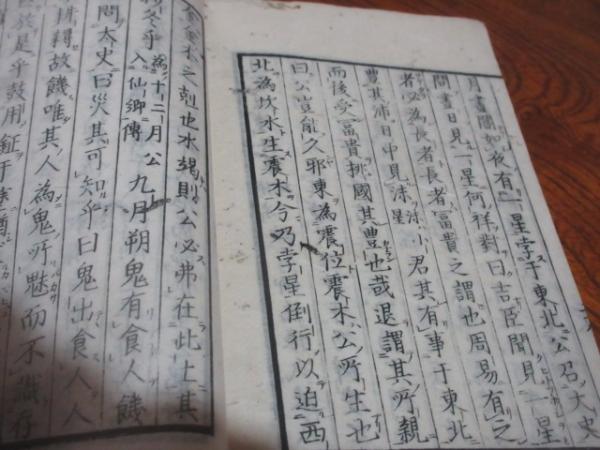 月晝闇如夜有一星孛于東北公召大史
問晝日見一星何祥對曰吉臣聞見一星
者必為長者長者冨貴之謂也周易有之
豊其沛日中見沬沬星小君其有事于東北
而後受冨貴挑國其豊也哉退謂其所親
曰公豈能久耶東為震位震木公所生也
北為坎水生震木今乃孛星倒行以迫西
金金木之剋也水竭則公必弗在此上其
冬乎為十二月公入仙卿傳九月朔鬼有食人饑
問太史曰災其可知乎曰鬼出食人人
耕耨故饑唯其人為鬼所魅而不識存
是乎鼓用鉦于